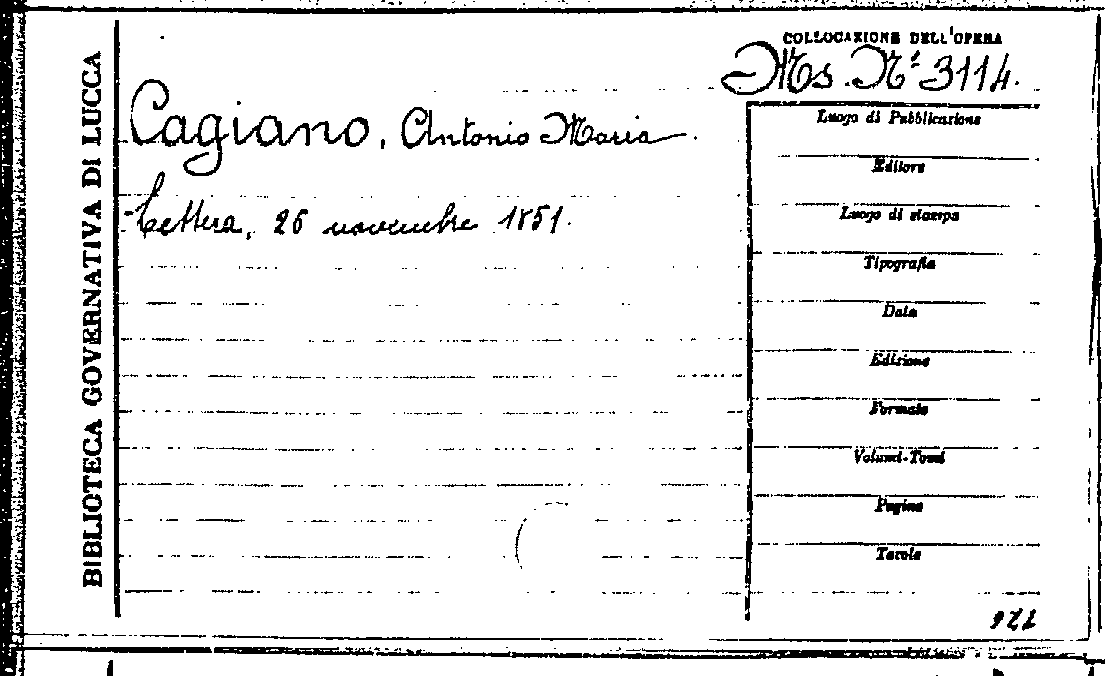 BIBLIOTECA GOVERNATIVA DI LUCCA
COLLOCAZIONE DELL'OPERA
Ms. N° 3114.
Cagiano, Antonio Maria.
Lettera, 26 novembre 1851.
Luogo di Pubblicazione
Editore
Luogo di stampa
Tipografia
Data
Edizione
Formato
Volumi-Tomi
Pagine
Tavole